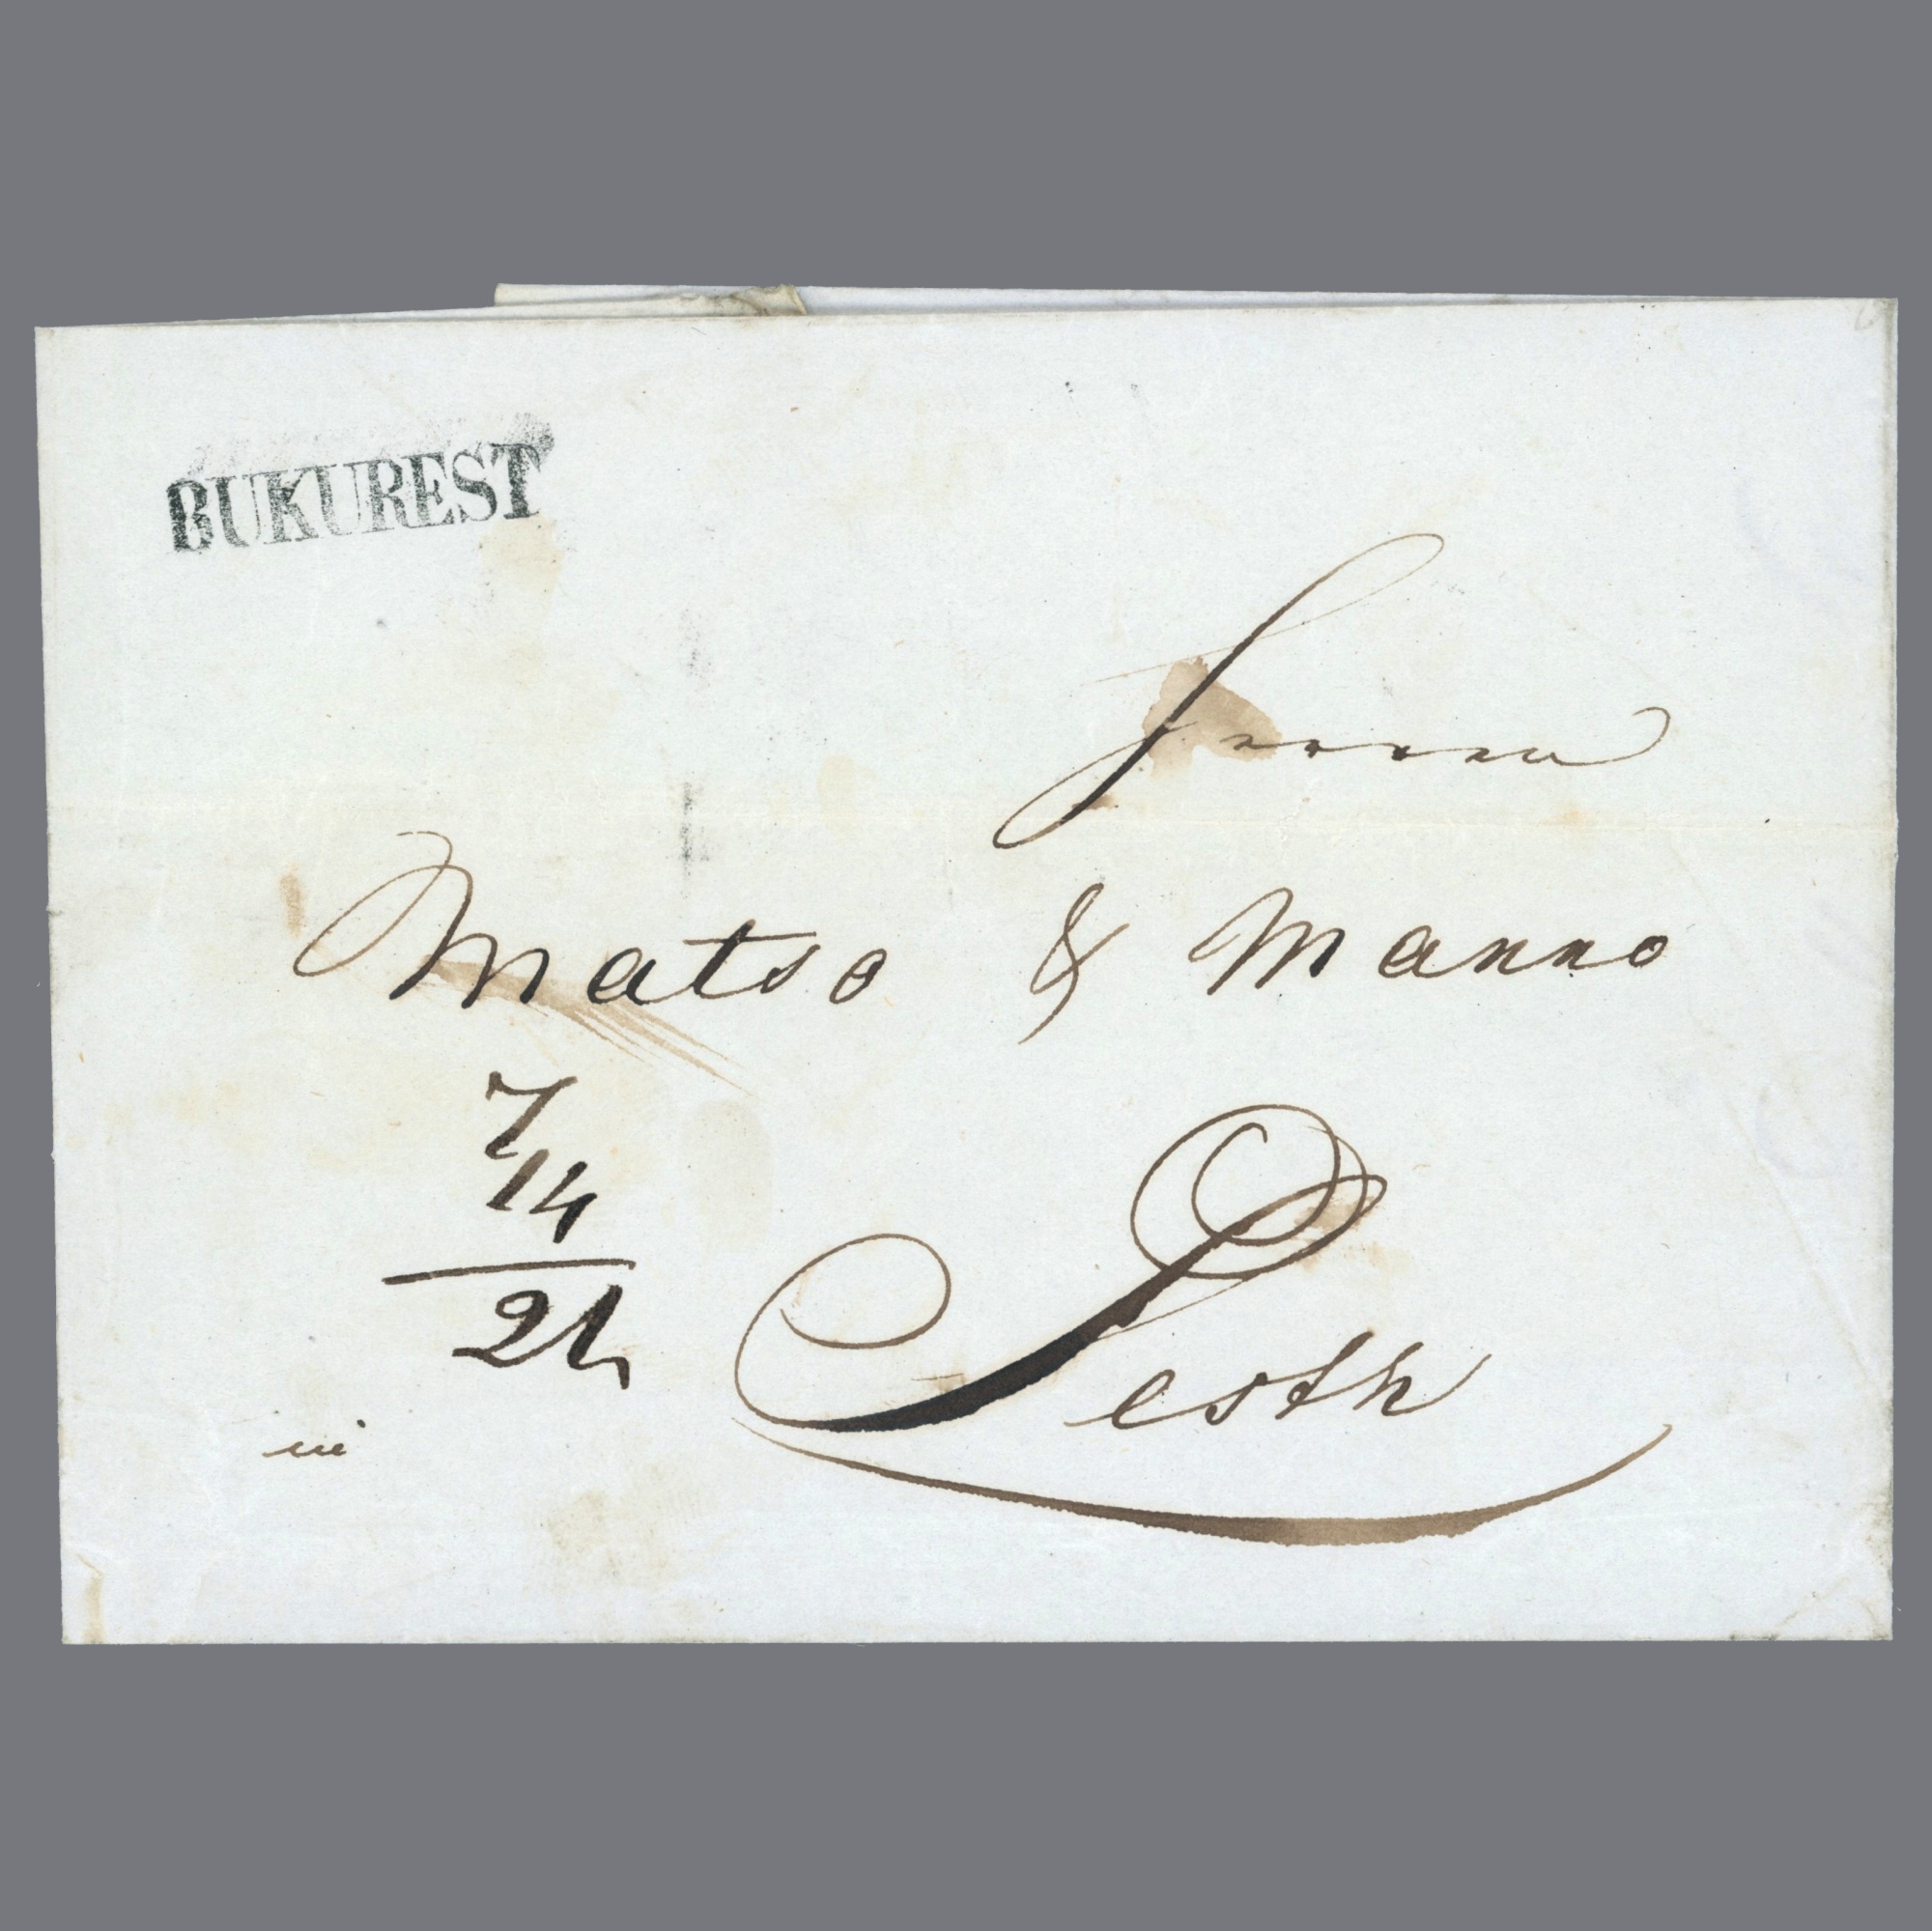 BUKUREST
Herren
Matso & Manno
7
14
21
Pesth